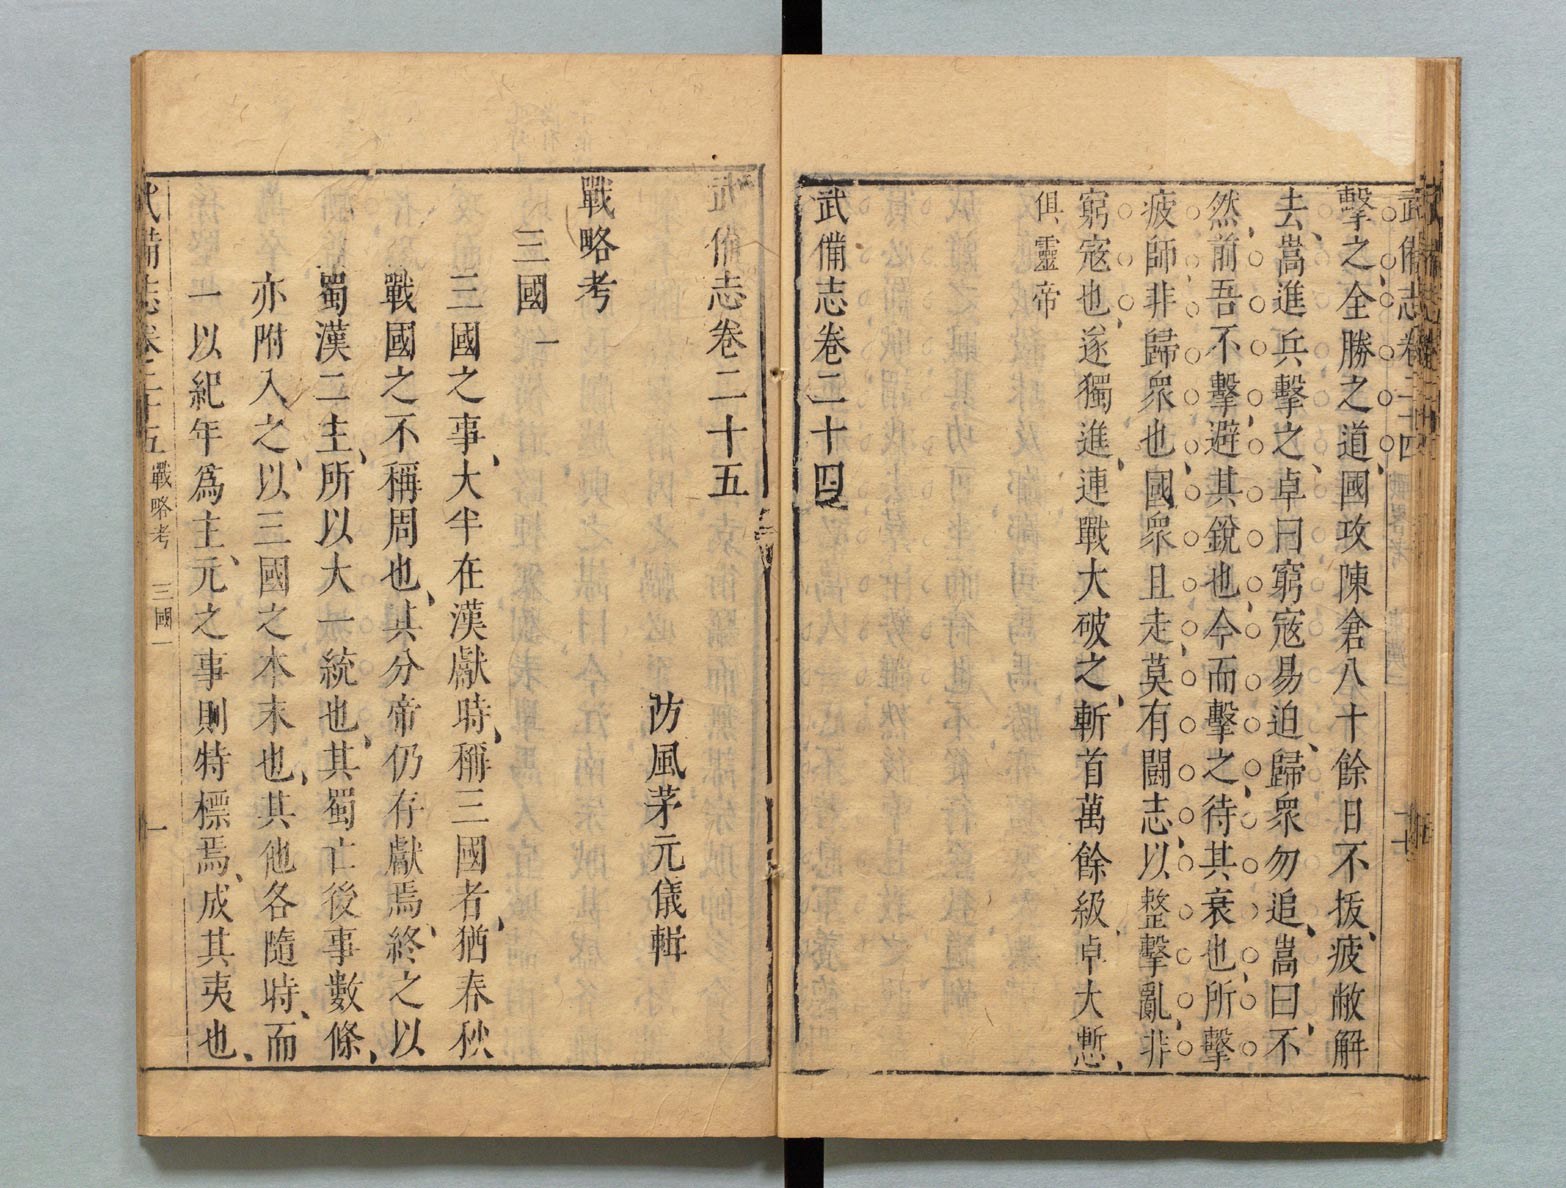 武備志卷二十四
擊之全勝之道國攻陳倉八十餘日不拔疲敝解
去嵩進兵擊之卓曰窮寇易迫歸衆勿追嵩曰不
然前吾不擊避其銳也今而擊之待其衰也所擊
疲師非歸衆也國衆且走莫有鬪志以整擊亂非
窮寇也遂獨進連戰大破之斬首萬餘級卓大慙
俱靈帝
武備志卷二十四
武備志卷二十五
防風茅元儀輯
戰略考
三國一
三國之事大半在漢獻時稱三國者猶春秋
戰國之不稱周也其分帝仍存獻焉終之以
蜀漢二主所以大一統也其蜀亡後事數條
亦附入之以三國之本末也其他各隨時而
一以紀年爲主元之事則特標焉成其夷也
武備志卷二十五 戰略考 三國一 一